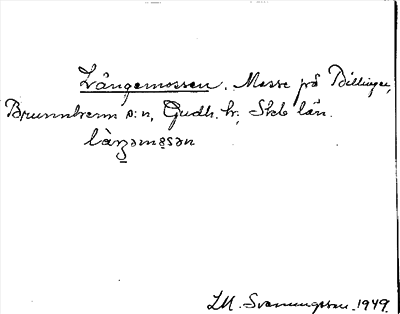 Långemossen. Mosse på Billingen,
Brunnhems s:n, Gudh. hr, Skab län.
làŋəmo̤sən
LM. Svenungsson. 1949.